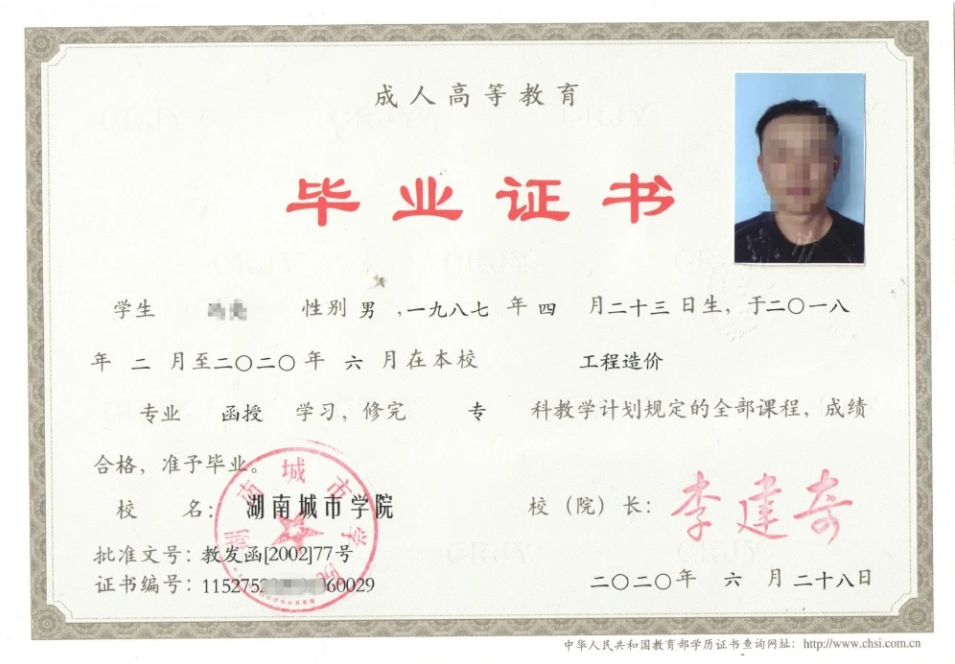 成人高等教育
毕业证书
学生 性别 男 ,一九八七 年 四 月二十三日生，于二〇一八
年 二 月至二〇二〇年 六 月在本校 工程造价
专业 函授 学习，修完 专 科教学计划规定的全部课程，成绩
合格，准予毕业。
校 名：湖南城市学院
校（院）长：李建奇
湖南城市学院
批准文号：教发函[2002]77号
证书编号：115275 60029
二〇二〇年 六 月二十八日
中华人民共和国教育部学历证书查询网址：http://www.chsi.com.cn